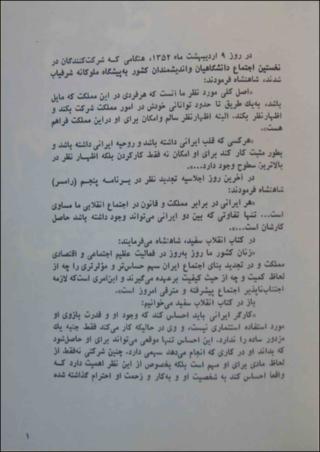 در روز ۹ اردیبهشت ماه ۱۳۵۲، هنگامی که شرکت‌کنندگان در
نخستین اجتماع دانشگاهیان و اندیشمندان کشور به‌پیشگاه ملوکانه شرفیاب
شدند، شاهنشاه فرمودند:
«اصل کلی مورد نظر ما است که هرفردی در این مملکت که مایل
باشد، به‌یک طریق تا حدود توانائی خودش در امور مملکت شرکت بکند و
اظهارنظر بکند. البته اظهارنظر سالم وامکان برای او دراین مملکت فراهم
هست».
«هرکسی که قلب ایرانی داشته باشد و روحیه ایرانی داشته باشد و
بطور مثبت کار کند برای او امکان نه فقط کارکردن بلکه اظهار نظر در
بالاترین سطوح وجود دارد...».
در آخرین روز اجلاسیه تجدید نظر در برنامه پنجم (رامسر)
شاهنشاه فرمودند:
«هر ایرانی در برابر مملکت و قانون در اجتماع انقلابی ما مساوی
است... تنها تفاوتی که بین دو ایرانی می‌تواند وجود داشته باشد حاصل
کارشان است...».
در کتاب انقلاب سفید، شاهنشاه می‌فرمایند:
«زنان کشور ما روز به‌روز در فعالیت عظیم اجتماعی و اقتصادی
مملکت و در تجدید بنای اجتماع ایران سهم حساس‌تر و مؤثرتری را چه از
لحاظ کمیت و چه از حیث کیفیت برعهده می‌گیرند و این‌امری است‌که لازمه
اجتناب‌ناپذیر اجتماع پیشرفته و مترقی امروز است».
باز در کتاب انقلاب سفید می‌خوانیم:
«کارگر ایرانی باید احساس کند که وجود او و قدرت بازوی او
مورد استفاده استثماری نیست، و وی در حالیکه کار می‌کند فقط جنبه یك
مزدور ساده را ندارد. این احساس تنها موقعی می‌تواند برای او حاصل‌شود
که بداند او در کاری که انجام می‌دهد سهیمی دارد. چنین شرکتی نه‌فقط از
لحاظ مادی برای او مهم است بلکه بخصوص از این نظر اهمیت دارد که
واقعا احساس کند به شخصیت او و به‌کار و زحمت او احترام گذاشته شده
۱